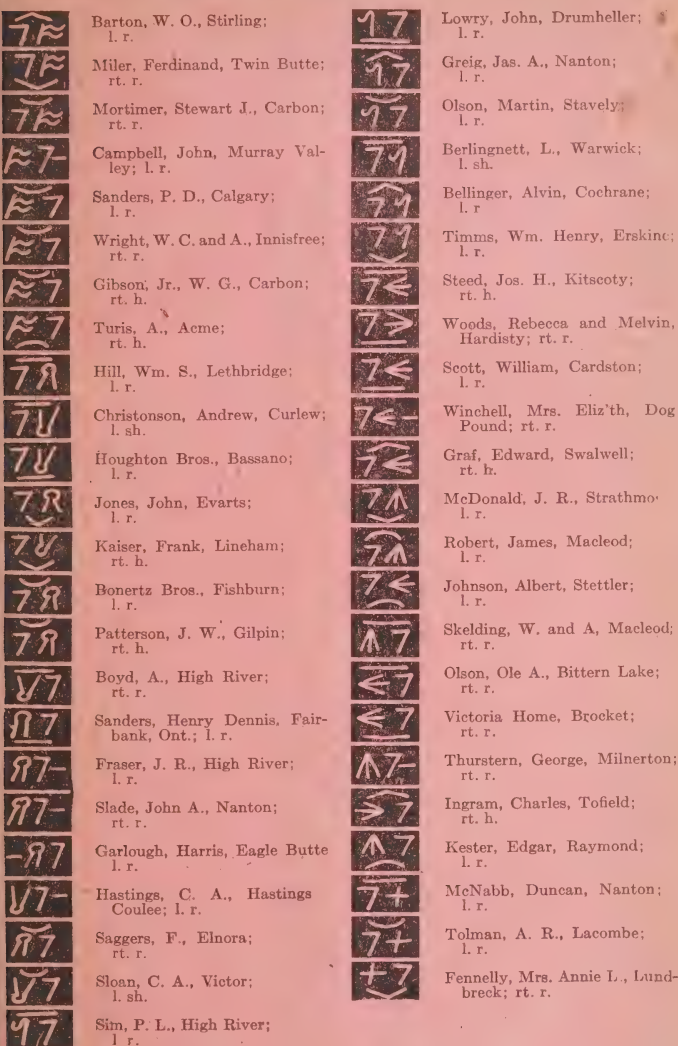 Barton, W. O., Stirling;
l. r.
Miler, Ferdinand, Twin Butte;
rt. r.
Mortimer, Stewart J., Carbon;
rt. r.
Campbell, John, Murray Val-
ley; l. r.
Sanders, P. D., Calgary;
l. r.
Wright, W. C. and A., Innisfree;
rt. r.
Gibson, Jr., W. G., Carbon;
rt. h.
Turis, A., Acme;
rt. h.
Hill, Wm. S., Lethbridge;
l. r.
Christonson, Andrew, Curlew;
l. sh.
Houghton Bros., Bassano;
l. r.
Jones, John, Evarts;
l. r.
Kaiser, Frank, Lineham;
rt. h.
Bonertz Bros., Fishburn;
l. r.
Patterson, J. W., Gilpin;
rt. h.
Boyd, A., High River;
rt. r.
Sanders, Henry Dennis, Fair-
bank, Ont.; l. r.
Fraser, J. R., High River;
l. r.
Slade, John A., Nanton;
rt. r.
Garlough, Harris, Eagle Butte
l. r.
Hastings, C. A., Hastings
Coulee; l. r.
Saggers, F., Elnora;
rt. r.
Sloan, C. A., Victor;
l. sh.
Sim, P. L., High River;
l r.
Lowry, John, Drumheller;
l. r.
Greig, Jas. A., Nanton;
l. r.
Olson, Martin, Stavely;
l. r.
Berlingnett, L., Warwick;
l. sh.
Bellinger, Alvin, Cochrane;
l. r
Timms, Wm. Henry, Erskine;
l. r.
Steed, Jos. H., Kitscoty;
rt. h.
Woods, Rebecca and Melvin,
Hardisty; rt. r.
Scott, William, Cardston;
l. r.
Winchell, Mrs. Eliz'th, Dog
Pound; rt. r.
Graf, Edward, Swalwell;
rt. h.
McDonald, J. R., Strathmo
l. r.
Robert, James, Macleod;
l. r.
Johnson, Albert, Stettler;
l. r.
Skelding, W. and A, Macleod;
rt. r.
Olson, Ole A., Bittern Lake;
rt. r.
Victoria Home, Brocket;
rt. r.
Thurstern, George, Milnerton;
rt. r.
Ingram, Charles, Tofield;
rt. h.
Kester, Edgar, Raymond;
l. r.
McNabb, Duncan, Nanton;
l. r.
Tolman, A. R., Lacombe;
l. r.
Fennelly, Mrs. Annie L., Lund-
breck; rt. r.